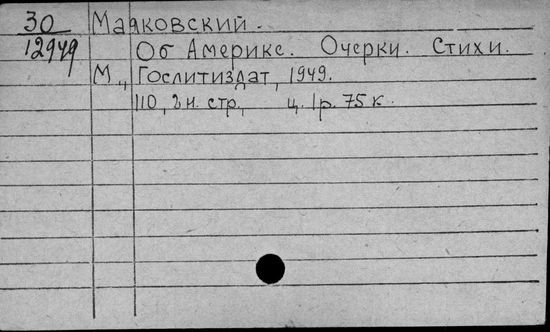 30 Маяковский.
12949 Об Америке. Очерки. Стихи.
М., Гослитиздат, 1949.
110, 2 н. стр., ц. 1 р. 75 к.